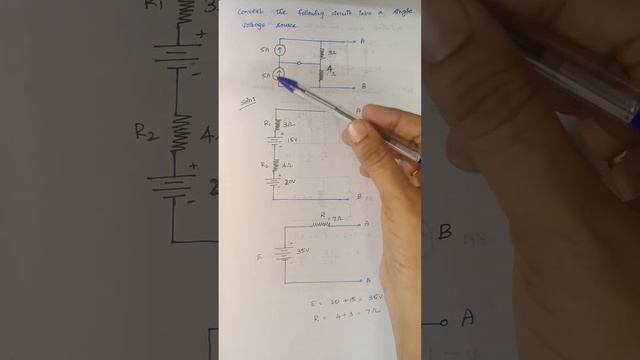 Convert the following circuit into a single
voltage source
A
5A
3Ω
4
Ω
5A
B
Soln:
A
R1
3Ω
+
15V
-
R2
4Ω
+
20V
-
B
R
= 7Ω
A
+
E
35V
-
A
E = 20 + 15 = 35V
R = 4 + 3 = 7Ω
R1
3
R2
4
2
B
A